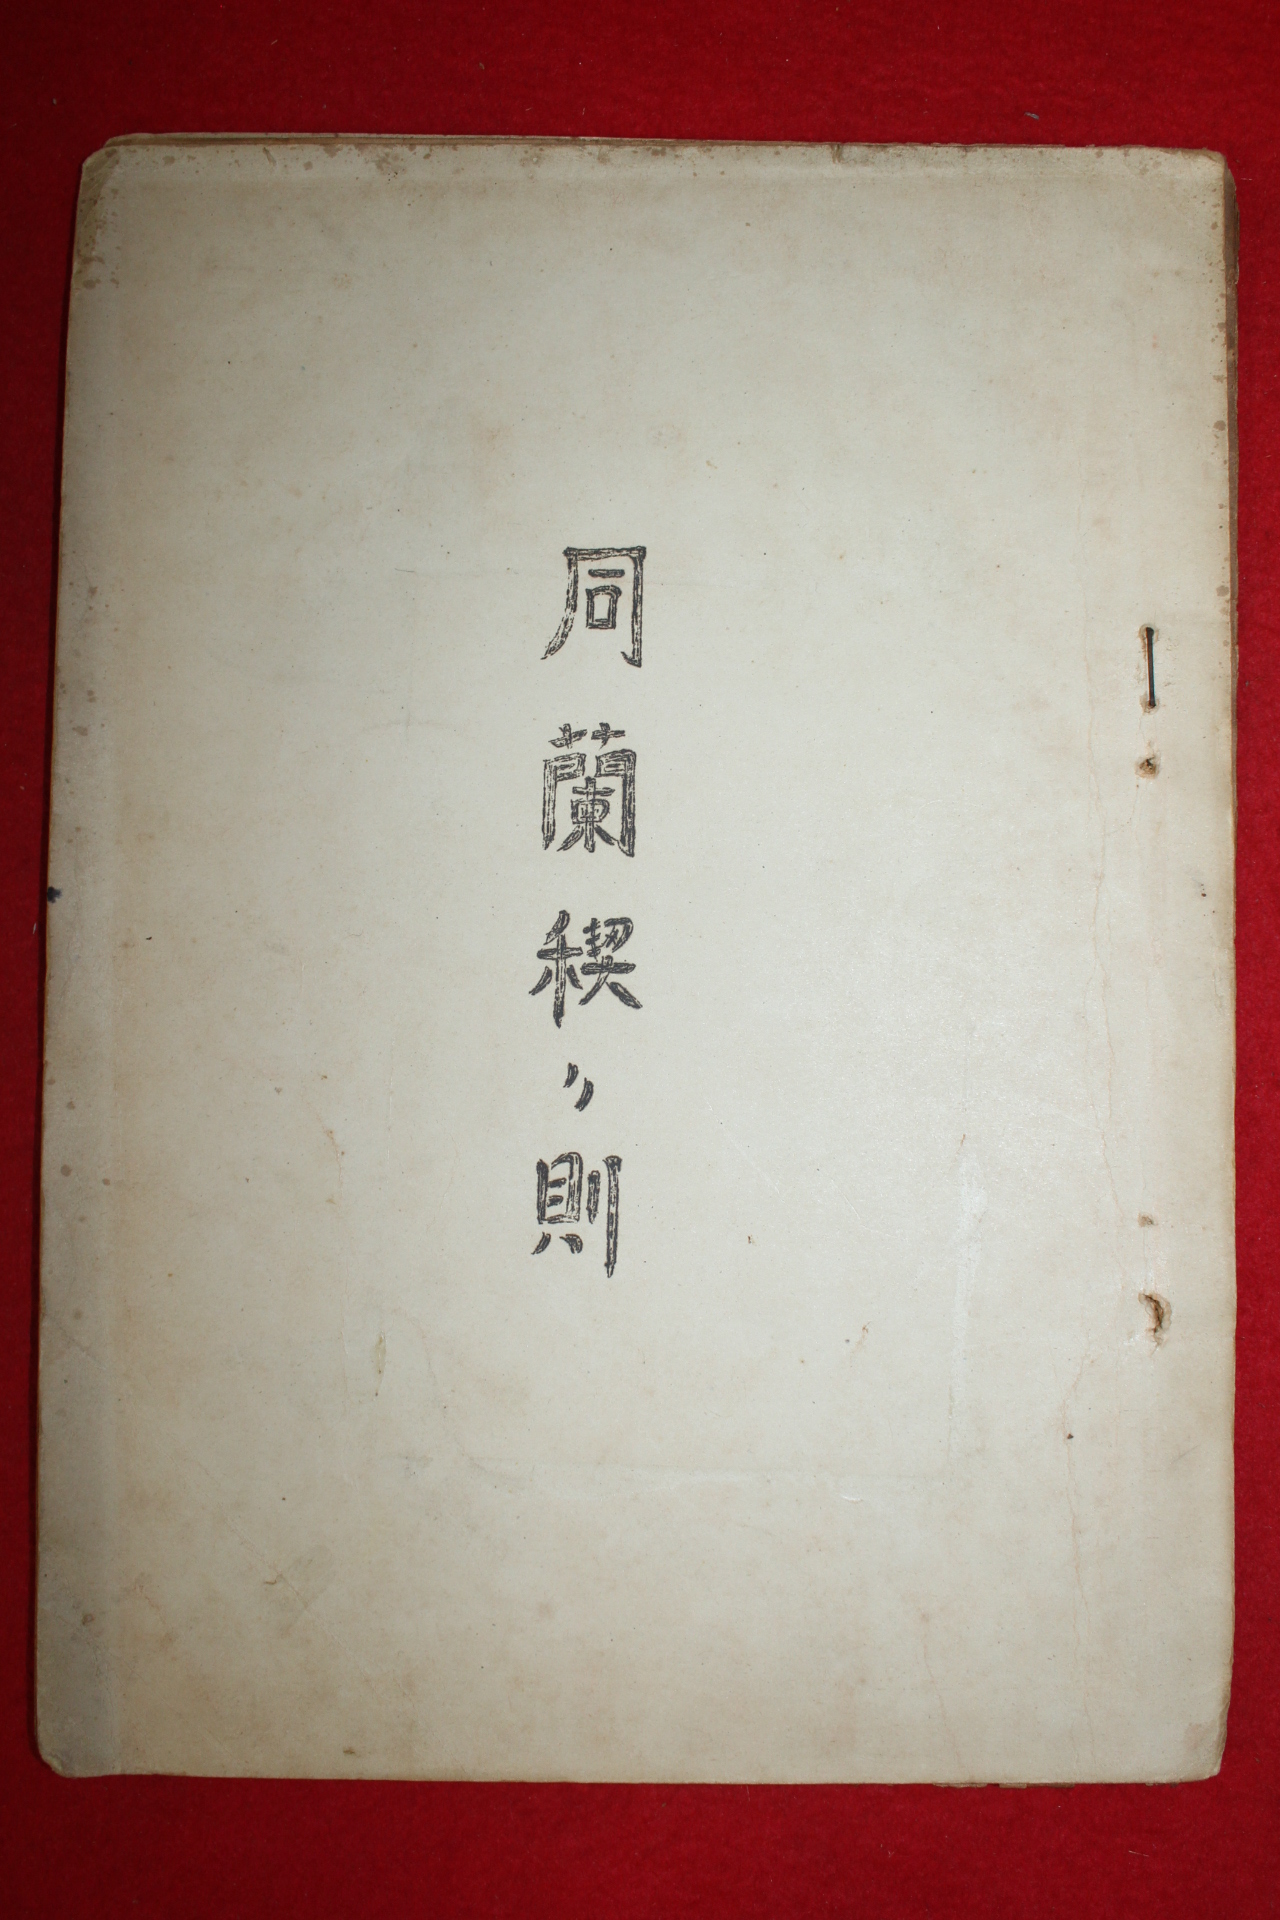 同蘭稧〃則